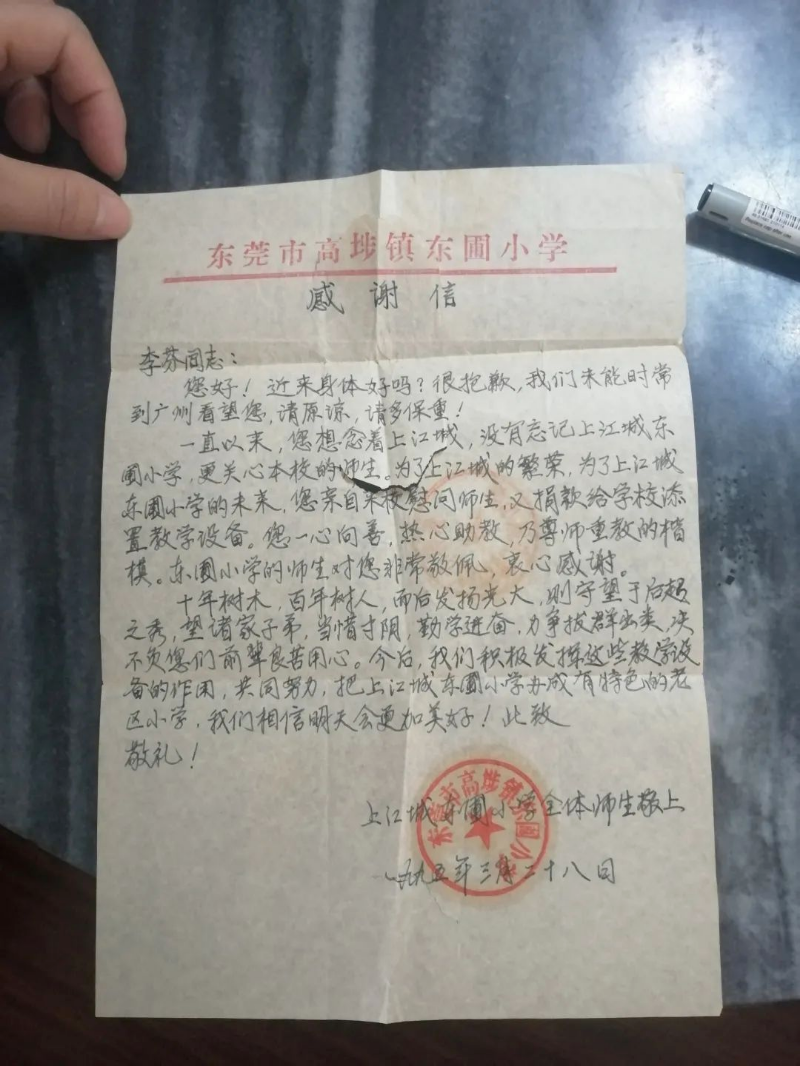 东莞市高埗镇东圃小学
感谢信
李芬同志：
您好！近来身体好吗？很抱歉，我们未能时常
到广州看望您，请原谅，请多保重！
一直以来，您想念着上江城，没有忘记上江城东
圃小学，更关心本校的师生。为了上江城的繁荣，为了上江城
东圃小学的未来，您亲自来校慰问师生，又捐款给学校添
置教学设备。您一心向善，热心助教，乃尊师重教的楷
模。东圃小学的师生对您非常敬佩，衷心感谢。
十年树木，百年树人，而后发扬光大，则守望于后起
之秀，望诸家子弟，当惜寸阴，勤学进奋，力争拔群出类，决
不负您们前辈良苦用心。今后，我们积极发挥这些教学设
备的作用，共同努力，把上江城东圃小学办成有特色的老
区小学，我们相信明天会更加美好！此致
敬礼！
上江城东圃小学全体师生敬上
东莞市高埗镇东圃小
一九九五年三月二十八日